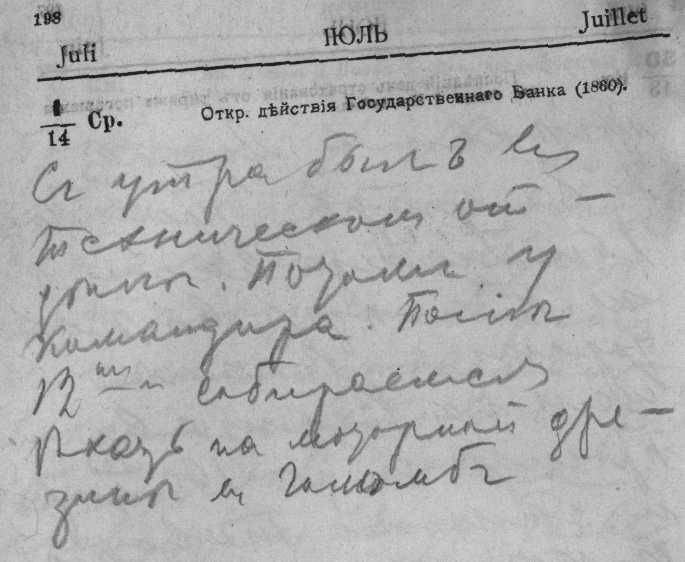 198
Juli ІЮЛЬ Juillet
1/14 Ср. Откр. дѣйствія Государственнаго Банка (1860).
Съ утра былъ въ
техническом от-
дѣлѣ. Позже у
командира. Послѣ
12 ти собираемся
ѣхать на моторной дре-
зинѣ въ